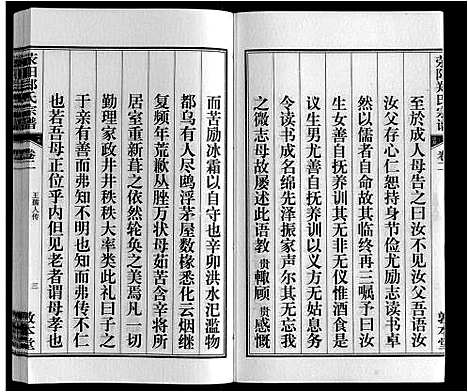 荥阳郑氏宗谱
卷二
至於成人母告之曰汝不见汝父吾语汝
汝父存心仁恕持身节俭尤励志读书卓
然以儒者自命故其临终再三嘱予曰汝
生女善自抚养训其无非无仪惟酒食是
议生男尤善自抚养训以义方无姑息务
令读书成名绵先泽振家声尔其无忘我
之微志母故屡述此语教 贵辙顾 贵感慨
而苦励冰霜以自守至辛卯洪水汜滥物
都乌有人尽鸥浮茅屋数椽悉化云烟继
复频年荒歉丛脞万状母茹苦含辛将所
居室重新葺之依然轮奂之美焉凡一切
勤理家政井井秩秩大率类此礼曰子之
于亲有善而弗知不明也知而弗传不仁
也若吾母正位乎内但见老者谓母孝也
荥阳郑氏宗谱
卷二
王孺人传
三
敦本堂